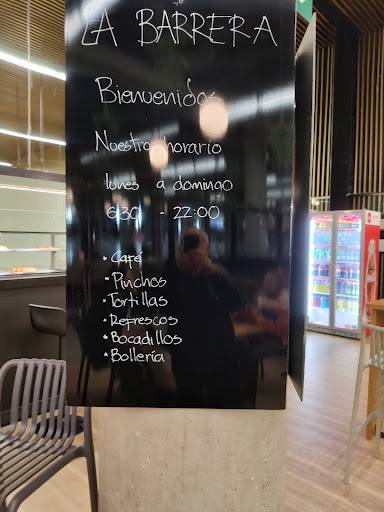 LA BARRERA
Bienvenidos
Nuestro horario
lunes a domingo
6:30 - 22:00
• Café
• Pinchos
• Tortillas
• Refrescos
• Bocadillos
• Bollería